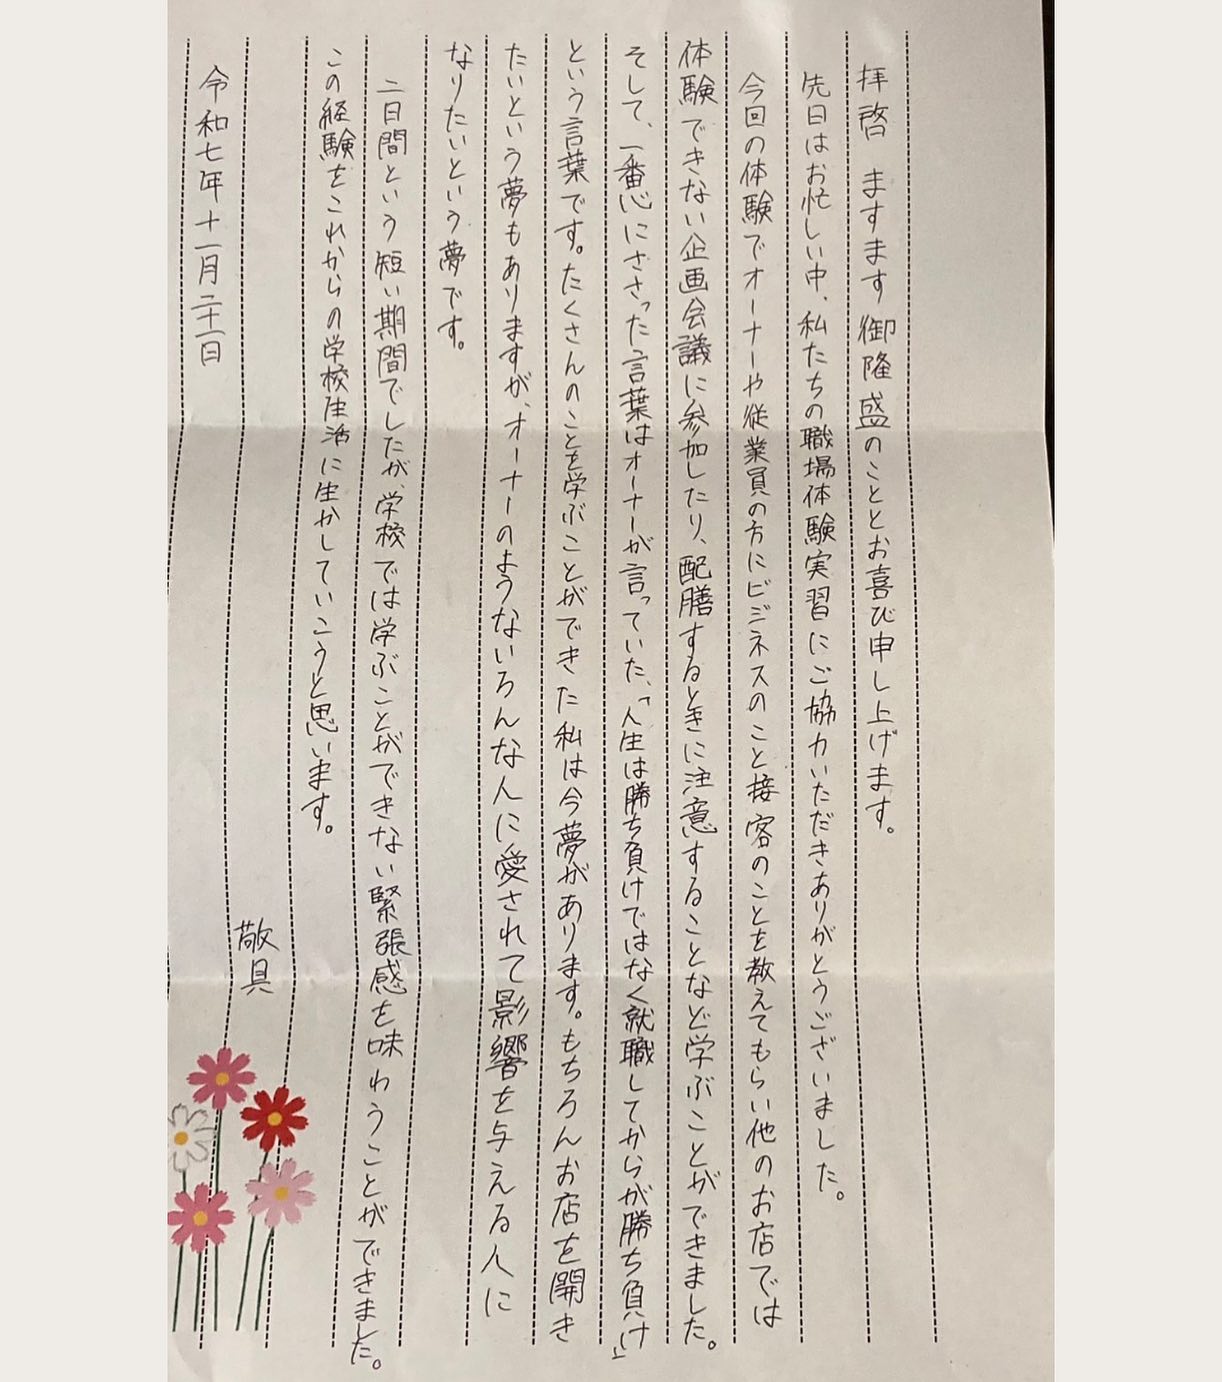 拝啓　ますます御隆盛のこととお喜び申し上げます。
先日はお忙しい中、私たちの職場体験実習にご協力いただきありがとうございました。
今回の体験でオーナーや従業員の方にビジネスのこと接客のことを教えてもらい他のお店では
体験できない企画会議に参加したり、配膳するときに注意することなど学ぶことができました。
そして、一番心にささった言葉はオーナーが言っていた、「人生は勝ち負けではなく就職してからが勝ち負け」
という言葉です。たくさんのことを学ぶことができた私は今夢があります。もちろんお店を開き
たいという夢もありますが、オーナーのようないろんな人に愛されて影響を与える人に
なりたいという夢です。
二日間という短い期間でしたが、学校では学ぶことができない緊張感を味わうことができました。
この経験をこれからの学校生活に生かしていこうと思います。
敬具
令和七年十一月二十一日